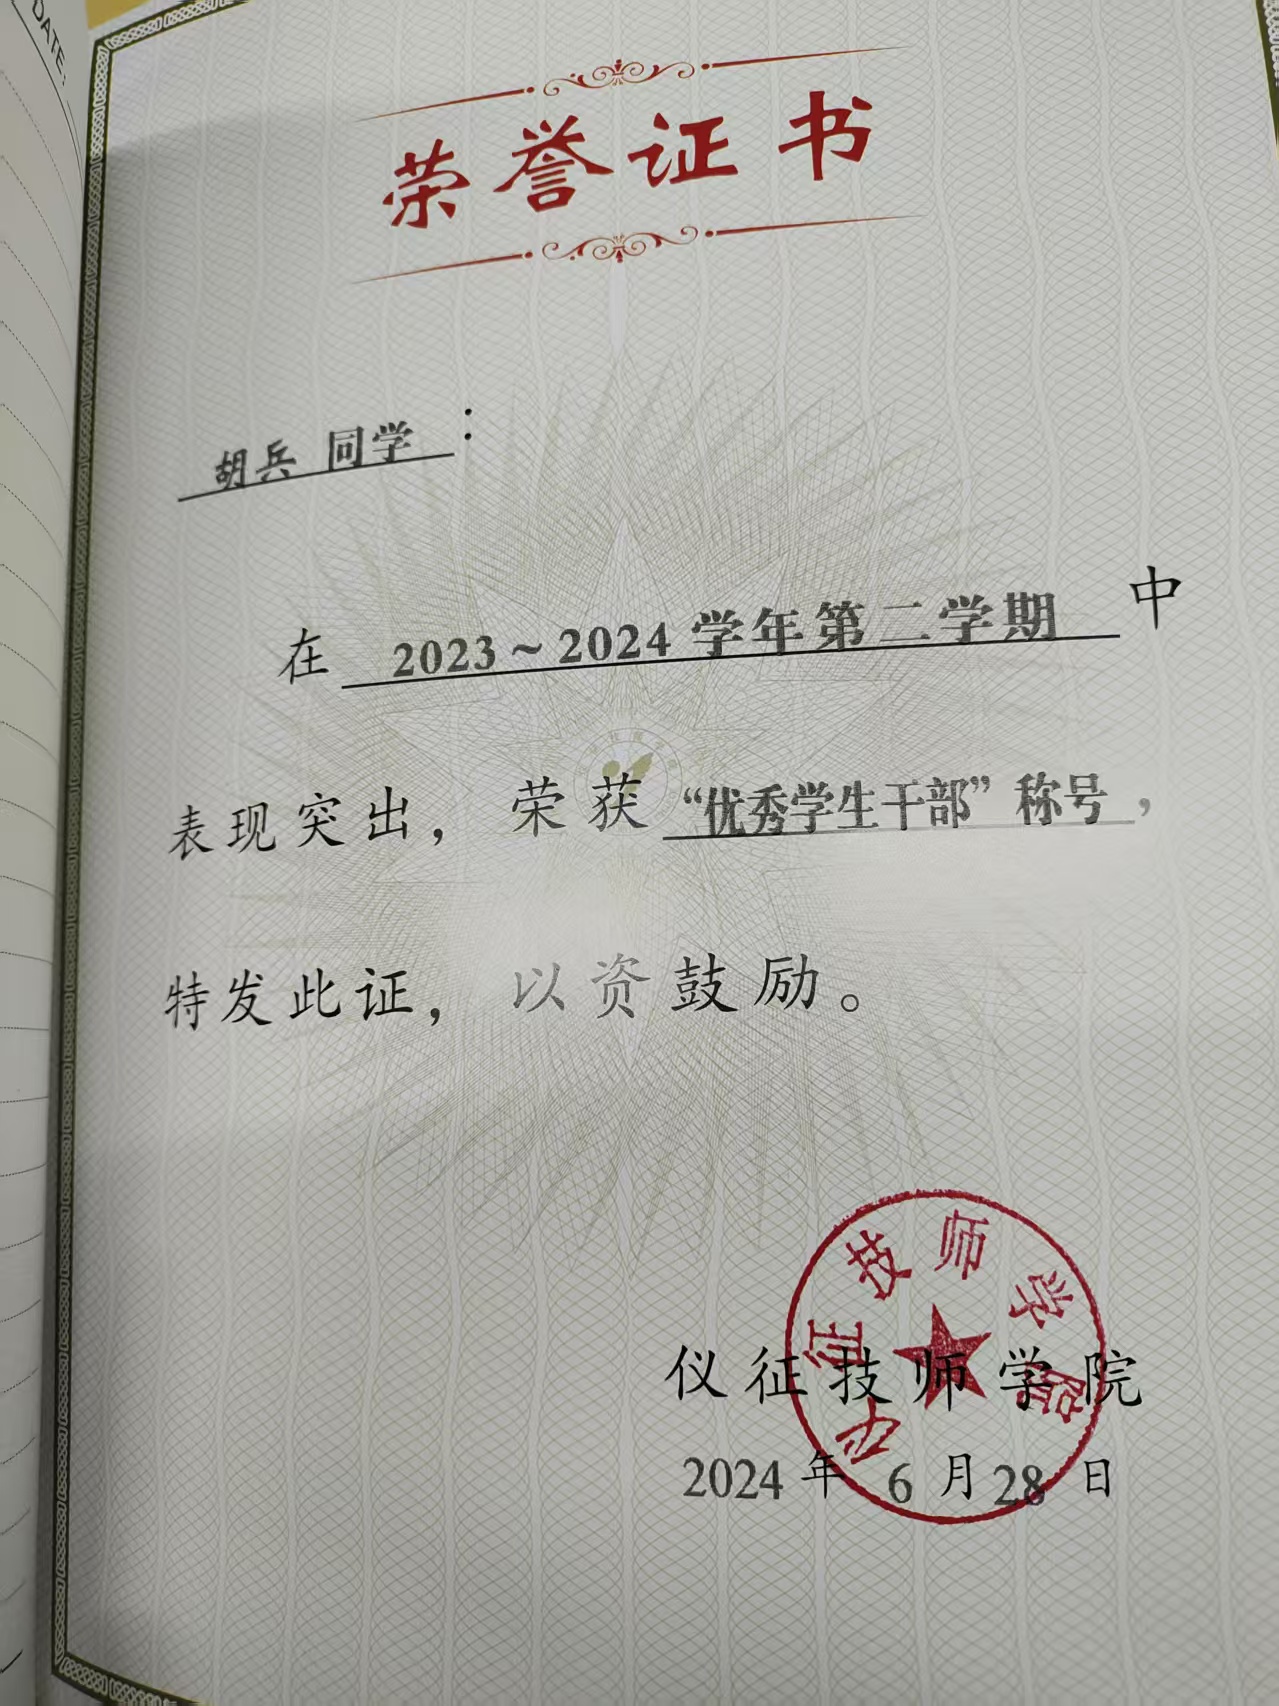 DATE:
荣誉证书
胡兵 同学：
在 2023~2024 学年第二学期 中
表现突出，荣获“优秀学生干部”称号，
特发此证，以资鼓励。
仪征技师学院
仪征技师学院
2024 年 6 月 28 日